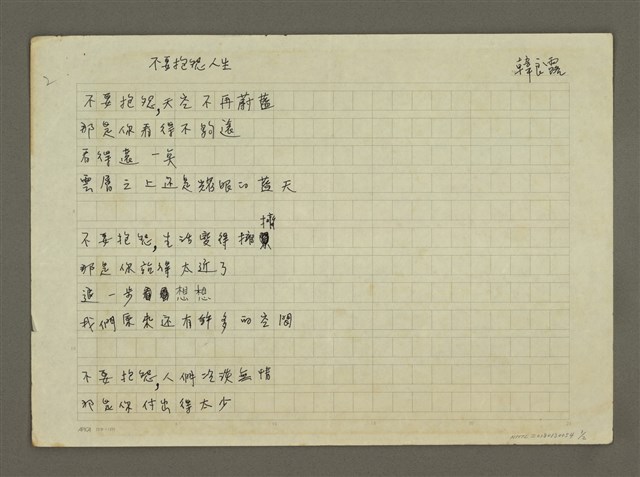 不要抱怨人生
韓良露
2
不要抱怨,天空不再蔚藍
那是你看得不夠遠
看得遠一矣
雲層之上还是耀眼的藍天
不要抱怨,生活變得擁擠
那是你站得太近了
退一步想想
我們原來还有許多的空間
不要抱怨,人们冷淡無情
那是你付出得太少